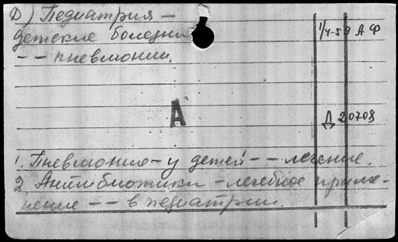 Ф) Педиатрия —
детские болезни 1/4-59 АФ
— — пневмонии.
А
Д 20708
1. Пневмония — у детей — — лечение.
2. Антибиотики — лечебное приме-
нение — — в педиатрии.